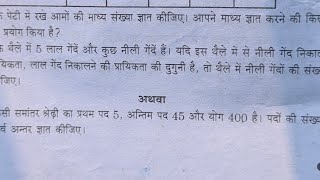 पेटी में रखे आमों की माध्य संख्या ज्ञात कीजिए। आपने माध्य ज्ञात करने की किस
प्रयोग किया है?
थैले में 5 लाल गेंदें और कुछ नीली गेंदें हैं। यदि इस थैले में से नीली गेंद निकाल
यिकता, लाल गेंद निकालने की प्रायिकता की दुगुनी है, तो थैले में नीली गेंदों की संख्
जिए।
अथवा
सी समांतर श्रेढ़ी का प्रथम पद 5, अन्तिम पद 45 और योग 400 है। पदों की संख्य
र्व अन्तर ज्ञात कीजिए।